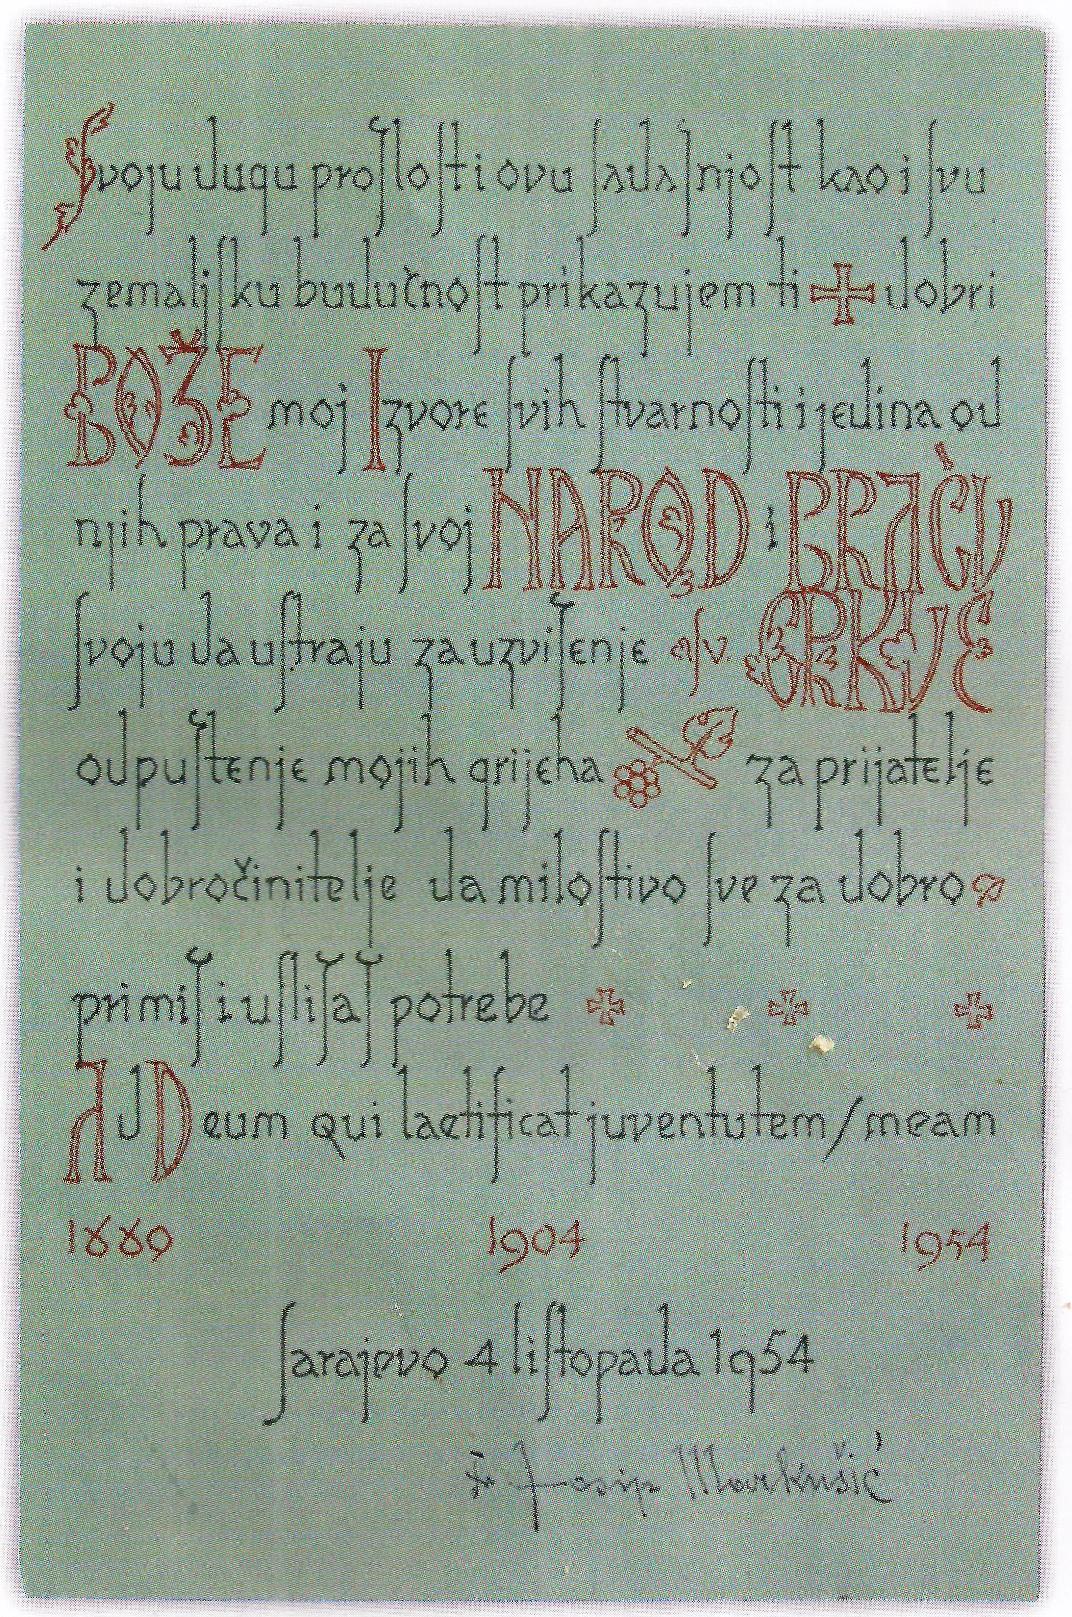 Svoju dugu prošlost i ovu sadašnjost kao i svu
zemaljsku budućnost prikazujem ti ✠ dobri
BOŽE moj Izvore svih stvarnosti i jedina od
njih prava i za svoj NAROD i BRAĆU
svoju da ustraju za uzvišenje sv. CRKVE
odpuštenje mojih grijeha za prijatelje
i dobročinitelje da milostivo sve za dobro
primiš i uslišaš potrebe
Ad Deum qui laetificat juventutem / meam
1889 1904 1954
Sarajevo 4 listopada 1954
fr Josip Markušić